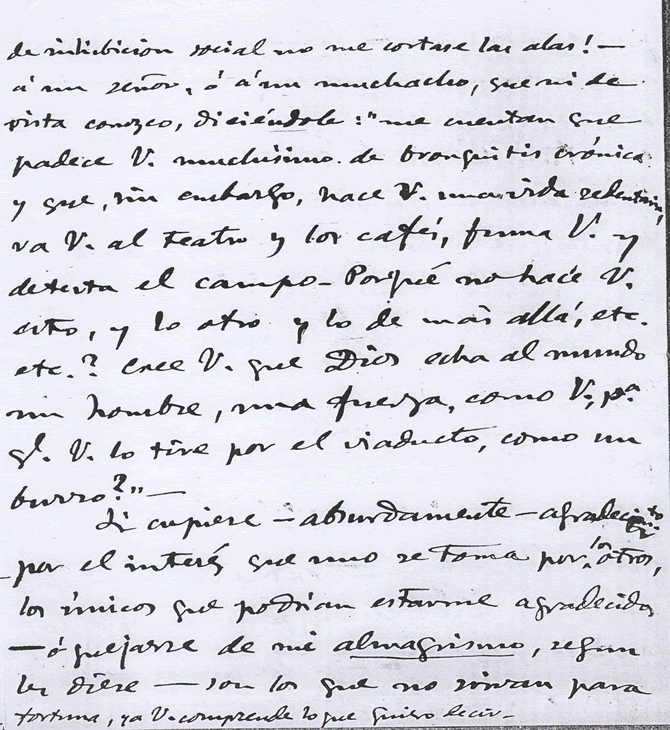 de inhibicion social no me cortase las alas! —
á un señor, ó á un muchacho, que ni de
vista conozco, diciéndole: "me cuentan que
padece V. muchísimo de bronquitis crónica
y que, sin embargo, hace V. una vida sedentaria,
va V. al teatro y los cafés, fuma V. y
detesta el campo — Porqué no hace V.
esto, y lo otro y lo de más allá, etc.
etc.? Cree V. que Dios echa al mundo
un hombre, una fuerza, como V., pª
q̱. V. lo tire por el viaducto, como un
burro?" —
Si cupiere — absurdamente — agradecimto
por el interés que uno se toma por los otros,
los únicos que podrían estarme agradecidos
— ó quejarse de mi almagrismo, segun
les diere — son los que no sirvan para
tortuna, ya V. comprende lo que quiero decir —